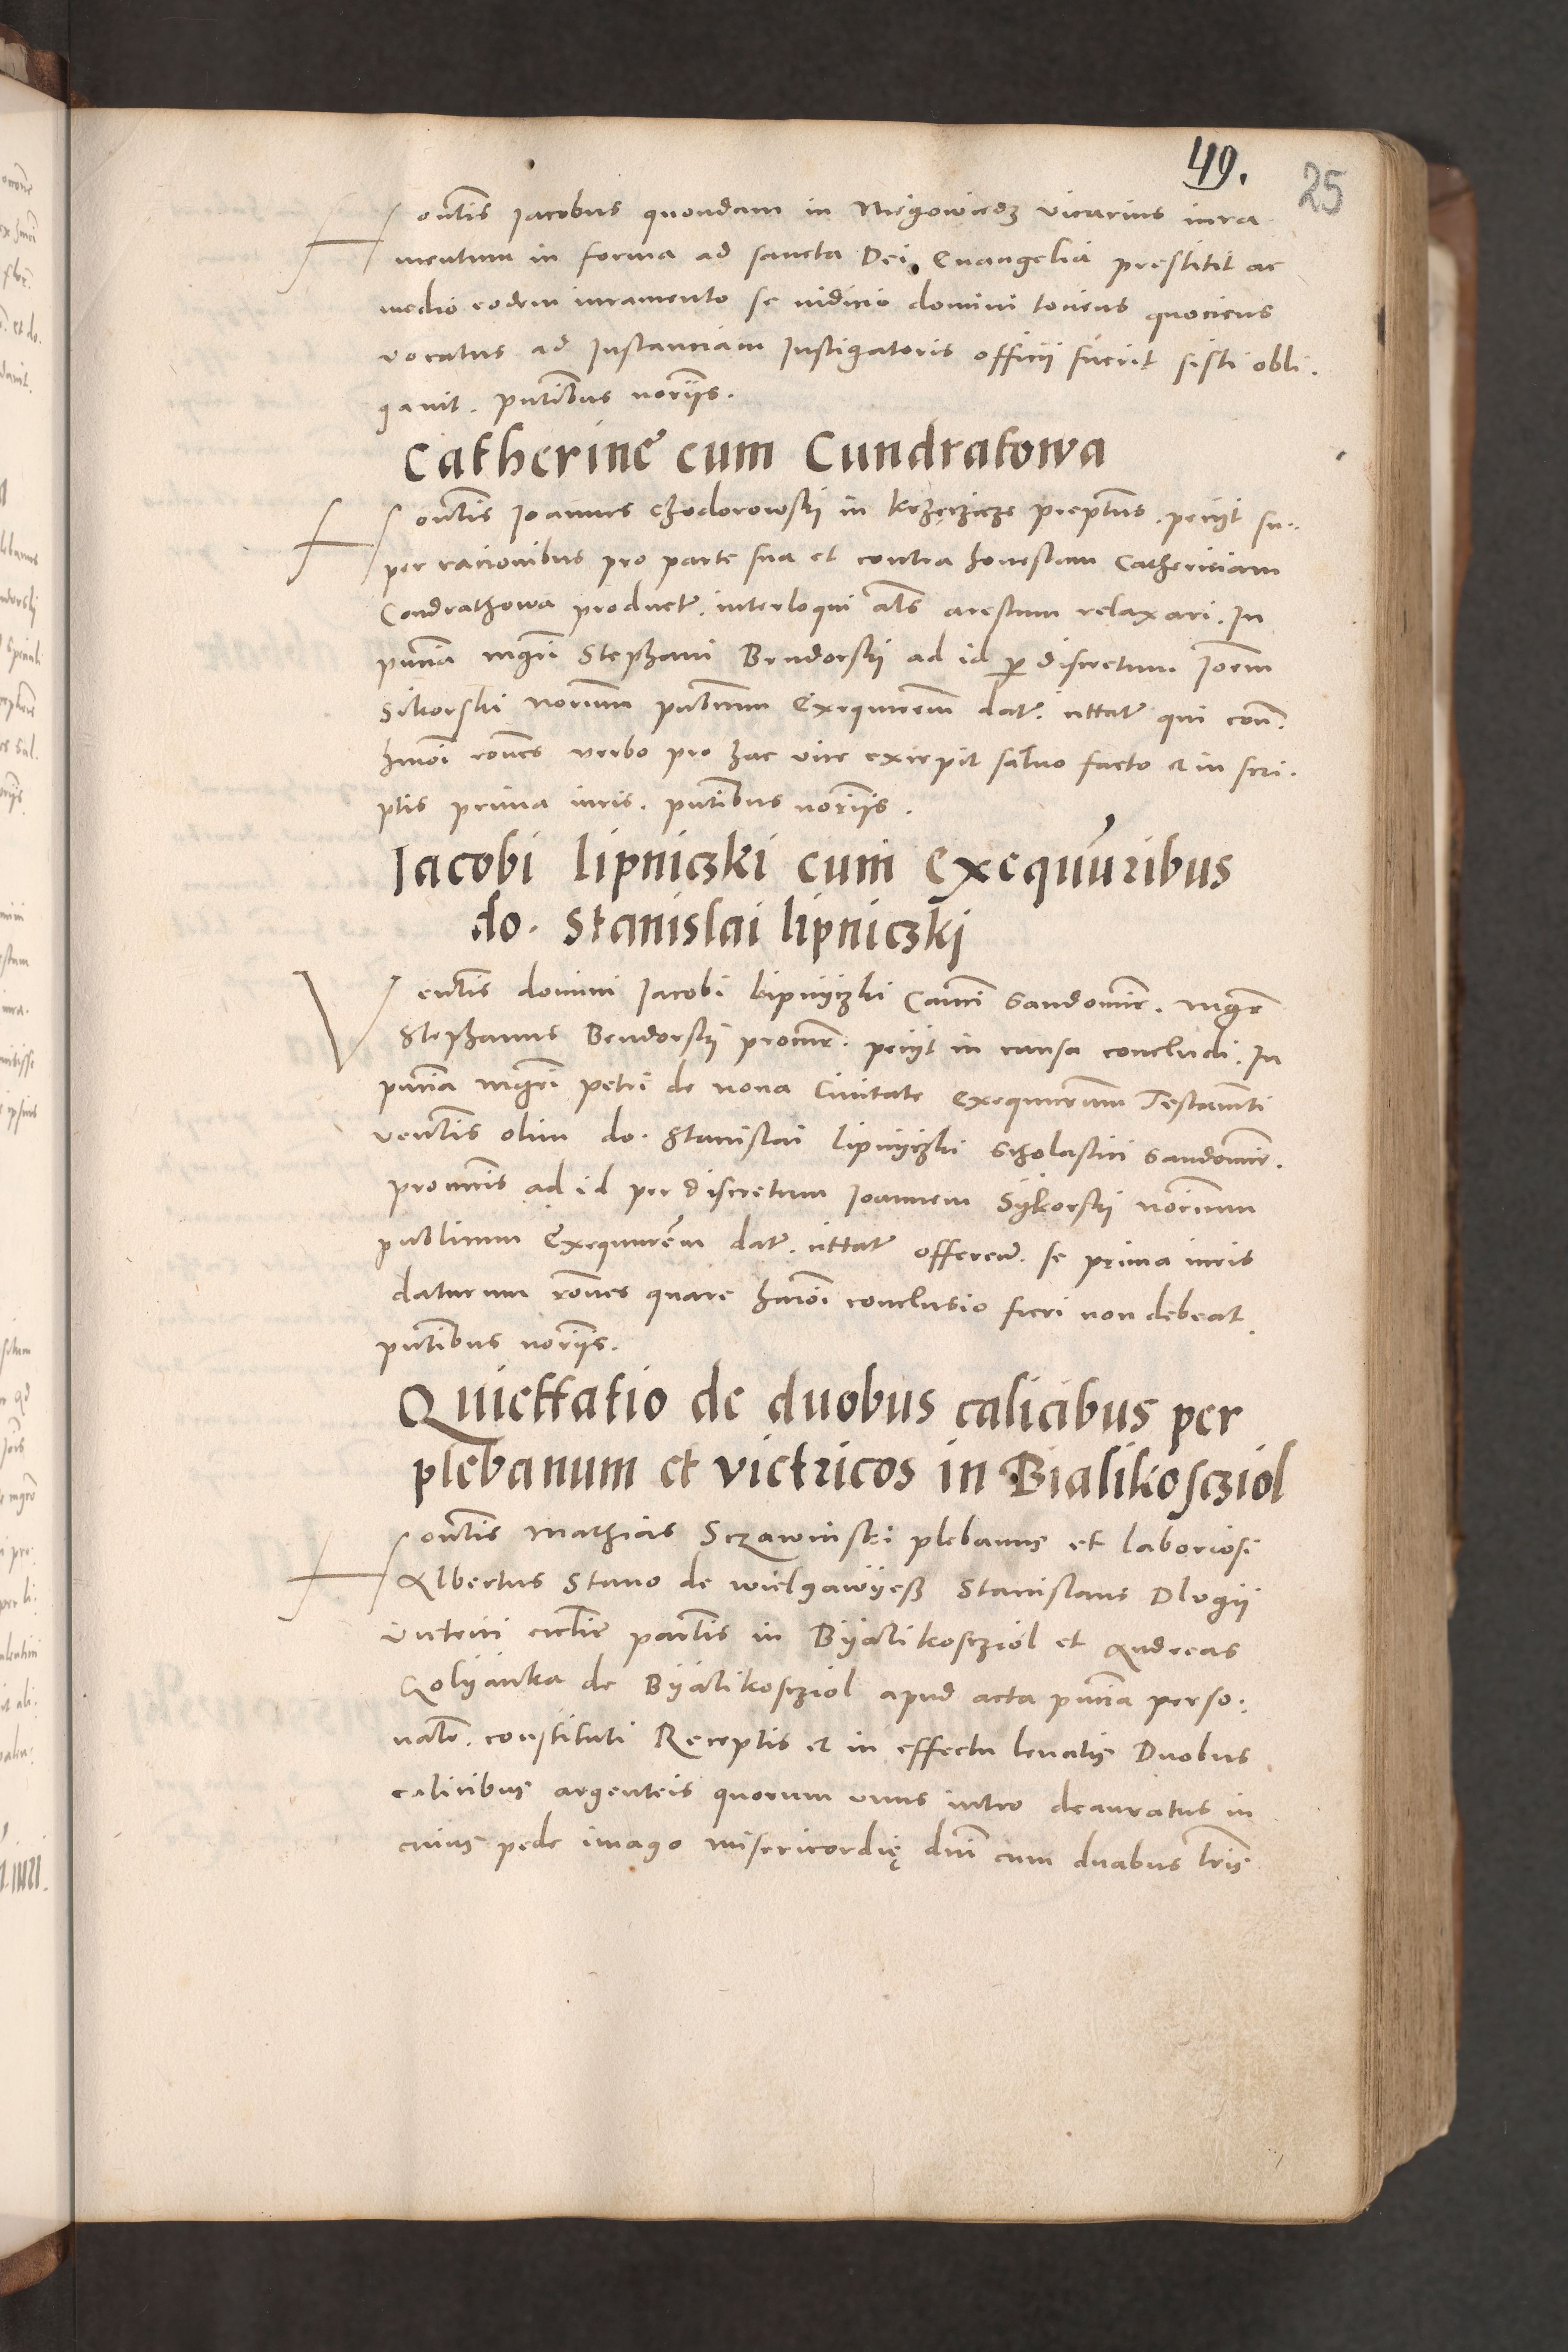 49.
25
Hontis Jacobus quondam in Niegowicz vicarius iura
mentum in forma ad sancta Dei Euangelia prestitit ac
medio eodem iuramento se iudicio domini tociens quociens
vocatus ad Instanciam Instigatoris officii fuerit sisti obli.
gauit. pntibus noriis.
Catherine cum Cundratowa
Hontis Joannes Chodorowskÿ in preptus. petijt su..
per racionibus pro parte sua et contra honestam Catherinam
Condrathowa product. interloqui als arestum relaxari. In
pncia mgri Stephani Bendorskÿ ad id per discretum Joem
Sikorski norium publicum Exequutem dat. cittat qui con.
hmoi rones verbo pro hac vice excepit saluo facto et in scri.
ptis prima iuris. pntibus noriis.
Jacobi lipniczki cum Exequuuribus
do. Stanislai lipniczki
Ventis domini Jacobi Lipnyczki Canci Sandomir. mgr
Stephanus Bendorskÿ procur. petijt in causa concludi. In
pncia mgri petri de noua Ciuitate Exequutorum Testamti
ventis olim do. Stanislai lipnyczki Scholastici Sandomir.
procuris ad id per discretum Joannem Sÿkorskÿ norium
publicum Exequurem dat. cittat offeren. se prima iuris
daturum rones quare hmoi conclusio fieri non debeat.
pntibus noriis.
Quiettatio de duobus calicibus per
plebanum et victricos in Bialikoscziol
Hontis Mathias Sczawinski plebanus et laboriosi
Albertus Stano de wielgawÿess Stanislaus Dlogii
vitrici ecclie parlis in Bÿalikosczÿol et Andreas
Golÿanka de Bÿalikosczÿol apud acta pncia perso.
nalr. constituti Receptis et in effectu leuatis Duobus
calicibus argenteis quorum vnus intro deauratus in
cuius pede imago misericordię dni cum duabus lris